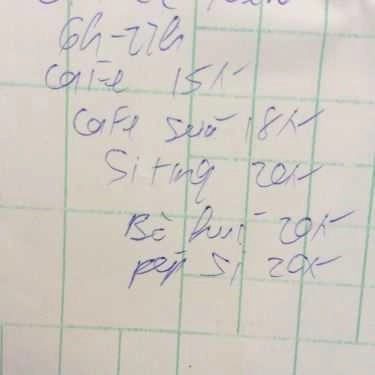 6h-22h
Cafe 15k
Cafe sữa 18k
Siting 20k
Bò húc 20k
pepsi 20k